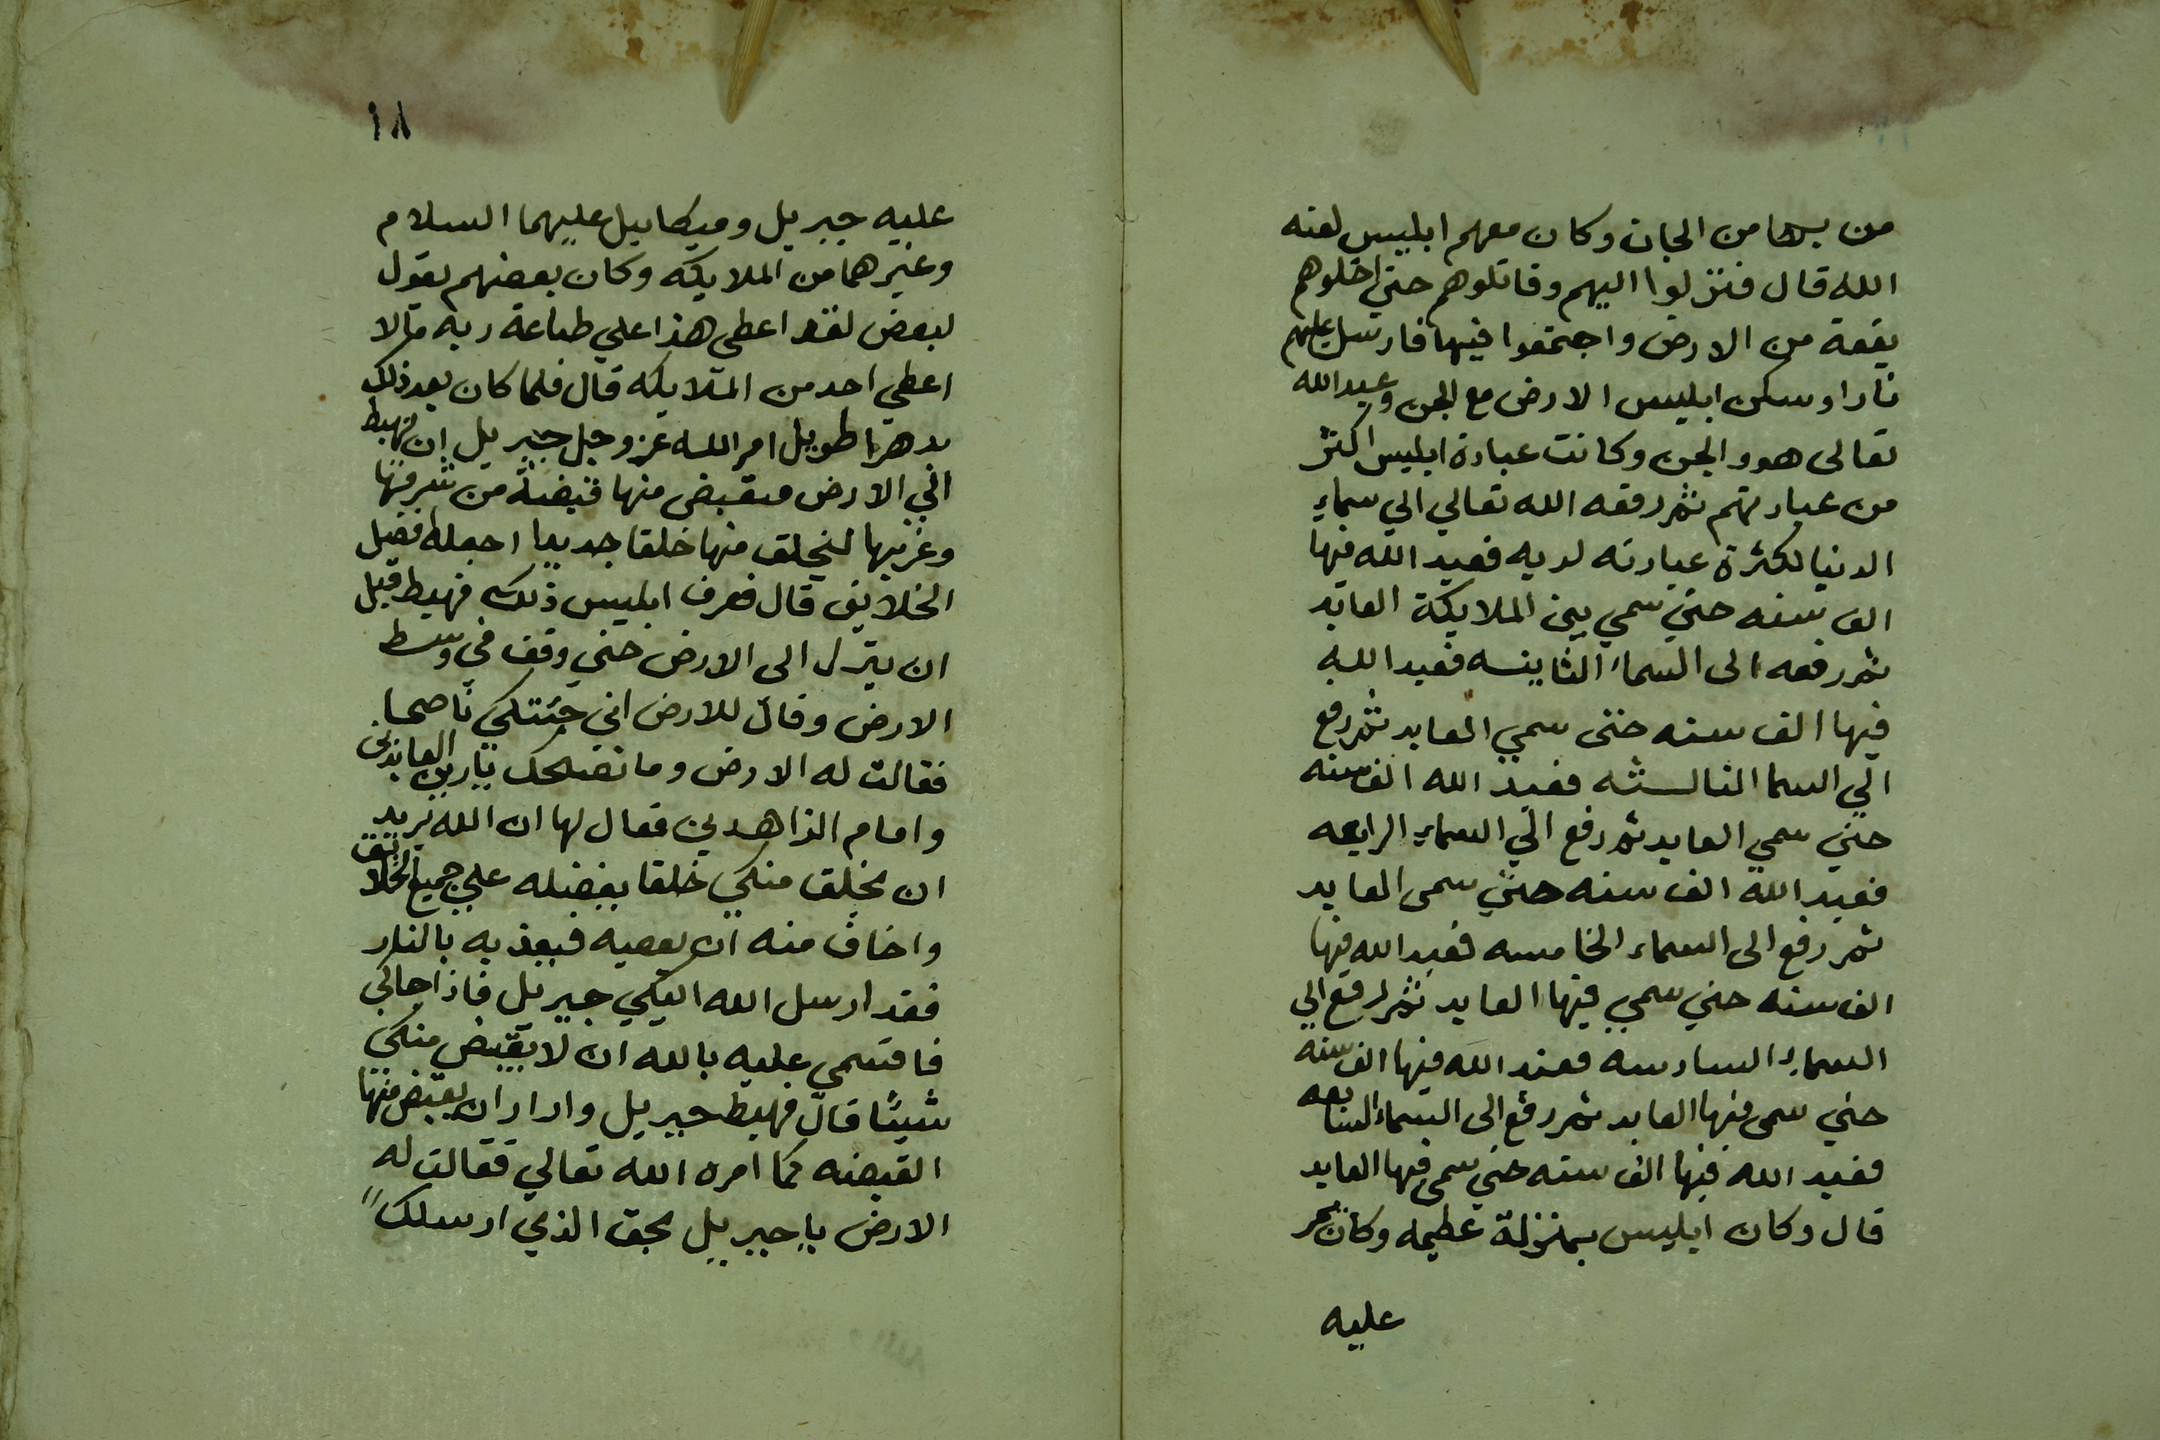 من بها من الجان وكان معهم ابليس لعنه
الله قال فنزلوا اليهم وقاتلوهم حتي ادخلوهم
بقعة من الارض واجتمعوا فيها فارسل عليهم
نارا وسكن ابليس الارض مع الجن وعبد الله
تعالى هو والجن وكانت عبادة ابليس اكثر
من عبادتهم ثم رفعه الله تعالي الي سماء
الدنيا لكثرة عبادته لربه فعبد الله فيها
الف سنه حتي سمي بين الملايكة العابد
ثم رفعه الى السماء الثانيه فعبد الله
فيها الف سنه حتى سمي العابد ثم رفع
الي السما الثالثه فعبد الله الف سنه
حتي سمي العابد ثم رفع الي السماء الرابعه
فعبد الله الف سنه حتي سمى العابد
ثم رفع الى السماء الخامسه فعبد الله فيها
الف سنه حتي سمي فيها العابد ثم رفع الي
السماء السادسه فعبد الله فيها الف سنه
حتي سمى فيها العابد ثم رفع الى السماء السابعه
فعبد الله فيها الف سنه حتي سمى فيها العابد
قال وكان ابليس بمنزلة عظيمه وكان يمر
عليه
١٨
عليه جبريل وميكاييل عليهما السلام
وغيرهما من الملايكه وكان بعضهم يقول
لبعض لقد اعطى هذا علي طاعة ربه مالا
اعطي احد من الملايكه قال فلما كان بعد ذلك
بدهرا طويل امر الله عز وجل جبريل ان يهبط
الي الارض فيقبض منها قبضة من شرقها
وغربها ليخلق منها خلقا جديدا اجعله فضل
الخلايق قال فعرف ابليس ذلك فهبط قبل
ان ينزل الى الارض حتي وقف في وسط
الارض وقال للارض اني جئتكي ناصحا
فقالت له الارض وما نصحك يا زين العابدين
وامام الزاهدين فقال لها ان الله يريد
ان يخلق منكي خلقا يفضله علي جميع الخلايق
واخاف منه ان يعصيه فيعذبه بالنار
فقد ارسل الله اليكي جبريل فاذا جاكي
فاقسمي عليه بالله ان لا يقبض منكي
شيئًا قال فهبط جبريل واراد ان يقبض منها
القبضه كما امره الله تعالي فقالت له
الارض يا جبريل بحق الذي ارسلك